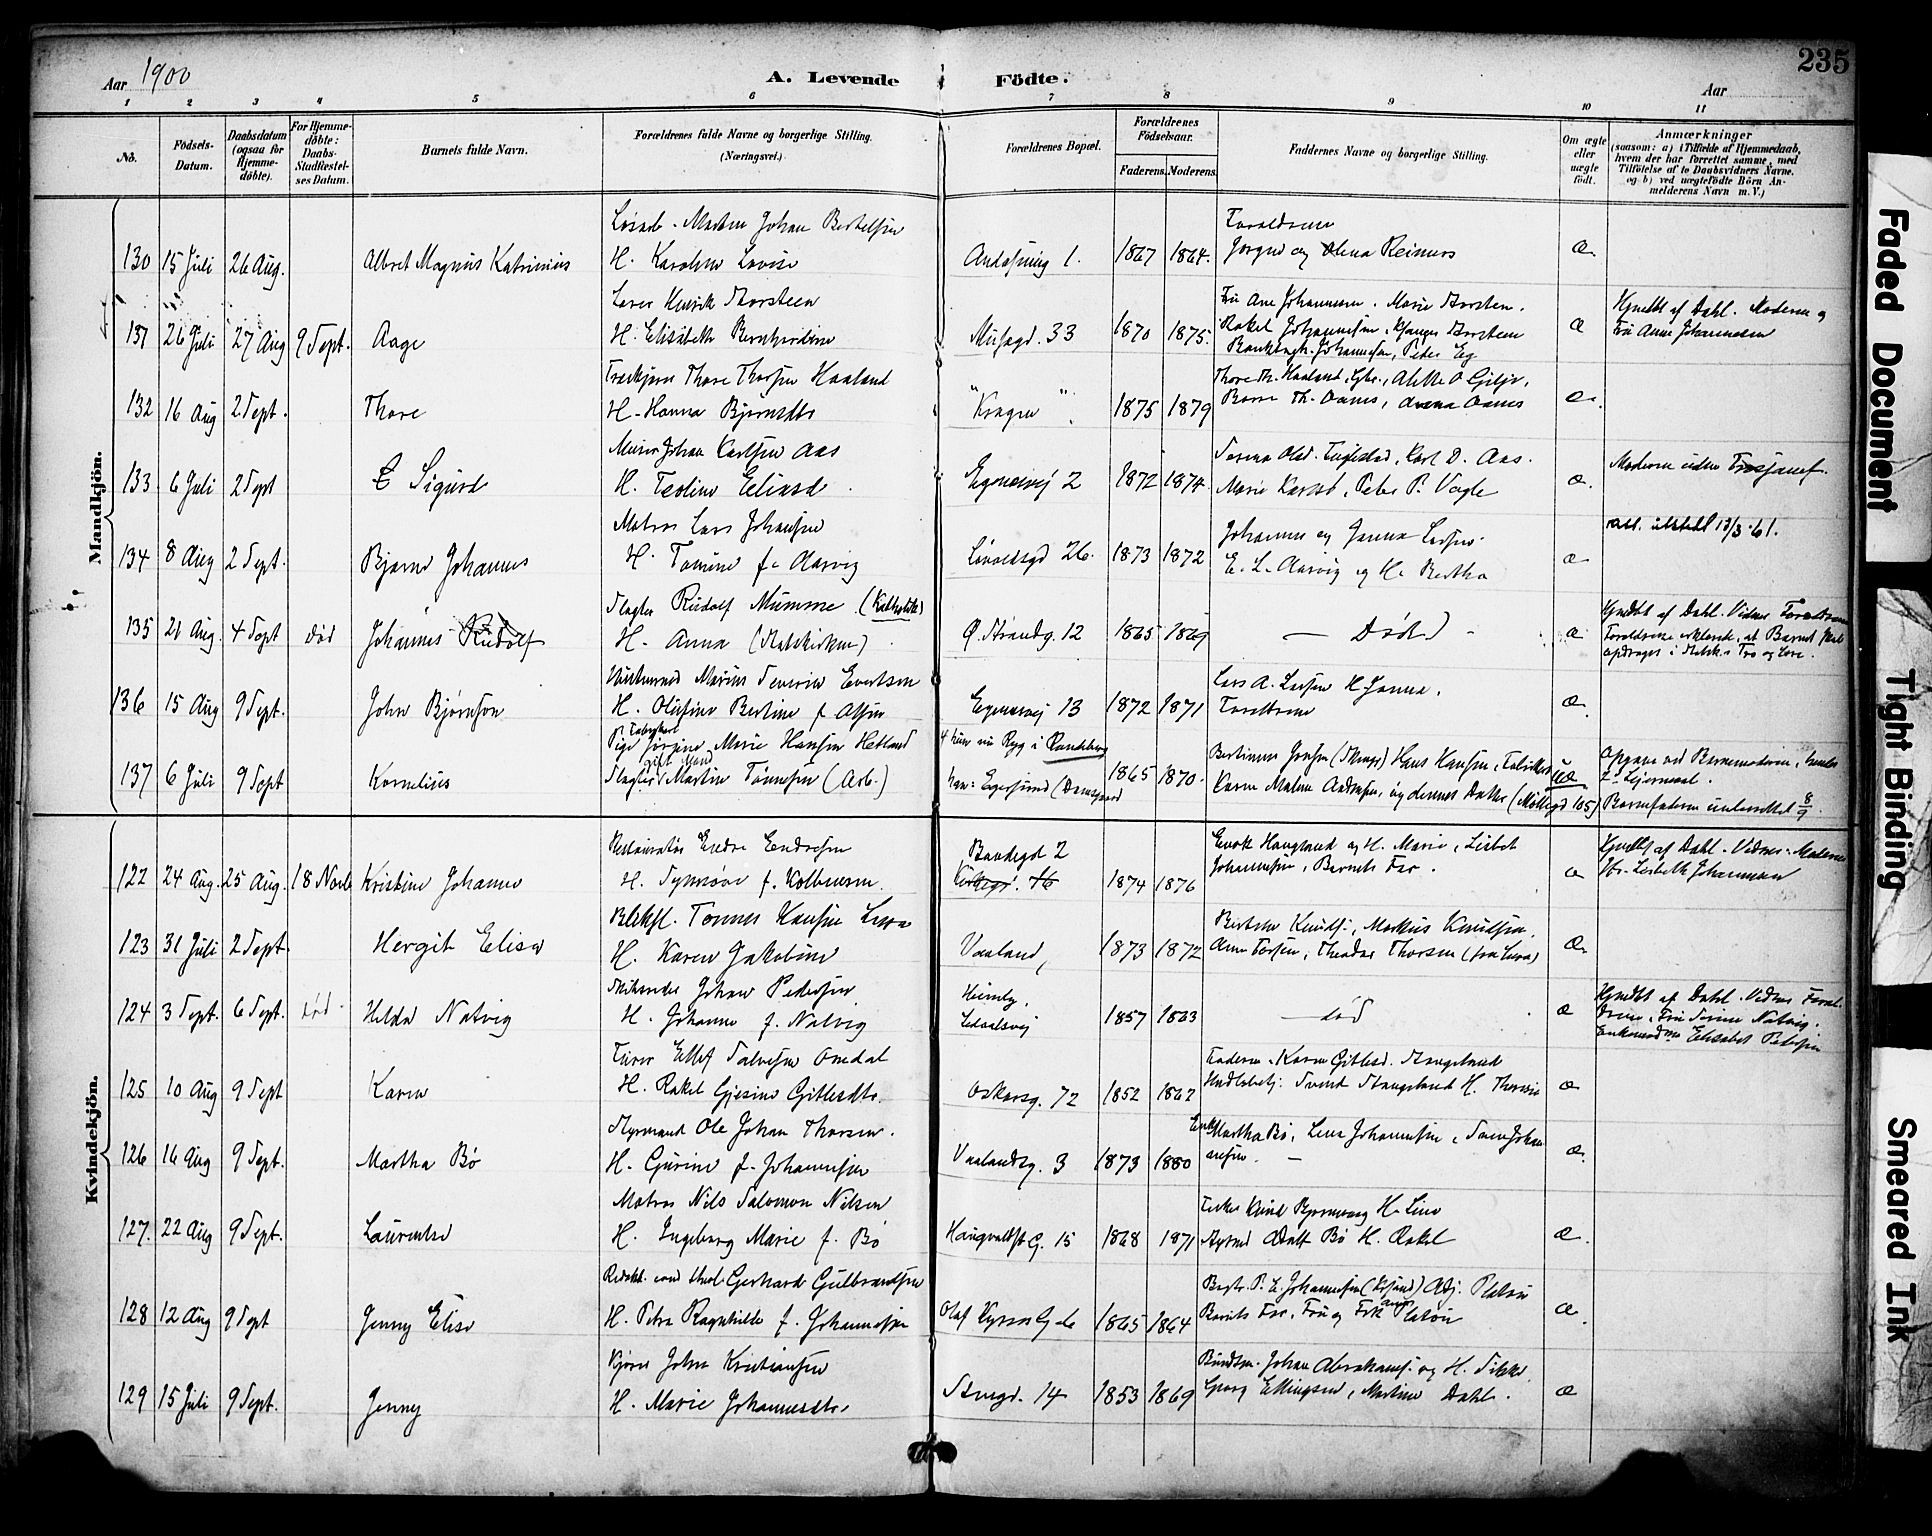 235
Aar 1900
A. Levende Födte.
Aar
1 2 3 4 5 6 7 8 9 10 11
No.
Födsels-Datum.
Daabsdatum (ogsaa for Hjemme-döbte).
For Hjemme-döbte: Daabs-Stadfæstel-ses Datum.
Barnets fulde Navn.
Forældrenes fulde Navne og borgerlige Stilling. (Næringsvei.)
Forældrenes Bopæl.
Forældrenes Födselsaar.
Faderens. Moderens.
Faddernes Navne og borgerlige Stilling.
Om ægte eller uægte født.
Anmærkninger
(saasom: a) i Tilfælde af Hjemmedaab, hvem der har forrettet samme, med Tilföielse af to Daabsvidners Navne, og b) ved uægtefödte Börn An-melderens Navn m. V.)
Mandkjön.
130 15 Juli 26 Aug. Albret Magnus Katrinius
Martin Johan Bertelsen
H. Karoline Lovise
1. 1867 1864.
Forældrene
Jørgen og Olena Reimers
æ.
131 26 Juli 27 Aug 9 Sept. Aage
Lærer Henrik Torsteen
H. Elisabeth Bernhardine
Musegd. 33 1870 1875.
Fru Ane Johannesen. Marie Torsteen.
Rakel Johannesen, Torsteen
Johannesen, Peder Eg
æ
Hjmdbt af Dahl. Moderen og
Fru Anne Johannesen
132 16 Aug 2 Sept. Thore
Thore Thorsen Haaland
H. Hanna Bjørnsdtr
"Kragen" 1875 1879
Thore Th. Haaland, Gbr., O Giljo,
Th. Oanes, Anna Oanes
æ.
133 6 Juli 2 Sept Sigurd
Murer Johan Karlsen Aas
H. Teoline Eliasd.
Egenesvej 2 1872 1874.
Karl D. Aas.
Marie Karlsd, Peter P. Vagle
æ.
Moderen uden
134 8 Aug 2 Sept. Bjarne Johannes
Matros Lars Johansen
H. Tomine f. Aarvig
Løvoldsgd 26. 1873 1872
Johannes og Janna Larsen.
E. L. Aarvig og H. Bertha
æ
att. utstedt 13/3-61.
135 21 Aug. 4 Sept død Johannes Rudolf
Slagter Rudolf Mumme (Katholik)
H. Anna (Statskirken)
Ø. Strandg. 12 1865 1869
— Død —
æ
Hjmdbt af Dahl. Vidner Forældrene
Forældrene erklærede, at Barnet skal
opdrages i Statsk. Tro og Lære.
136 15 Aug 9 Sept. John Bjørnson
Marius Severin Evertsen
H. Olufine Bertine f. Olsen
Egenesvej 13 1872 1871
Lars A. Larsen H Janna.
Forældrene
æ.
137 6 Juli 9 Sept Kornelius
Pige Jörgine Marie Hansen Hetland
gift Mand
Slagter Martin Tönnesen (Arb.)
i Randeberg
han: Egersund
1865 1870.
Hans Hansen,
Karen Malene Andersen, og dennes Datter (Møllegd 105)
uæ
Opgave ved Barnemoderen, hendes
2det Leiermaal.
Barnefaderen underrettet 8/9.
Kvindekjön.
122 24 Aug. 25 Aug. 18 Novb Kristine Johanne
Restauratør Endre Endresen
H. Synnøve f. Kolbensen.
Bandegd 2
Kirkegd. 16 1874 1876
Enok Haugland og H. Marie, Lisbet
Johannesen, Barnets Far.
æ
Hjmdbt af Dahl. Vidner: Moderen
Lisbeth Johannesen
123 31 Juli 2 Sept. Hergit Elise
Blikksl. Tönnes Hansen Lura
H. Karen Jakobine
Vaaland, 1873 1872
Bertine Knuds., Markus Knudsen.
Anne Torsen, Theodor Thorsen (fra Lura)
æ.
124 3 Sept. 6 Sept. død. Hilda Natvig
Johan Pedersen
H. Johanne f. Natvig
Ledaalsvej 1857 1863
— død
æ
Hjmdbt af Dahl. Vidner Foræl-
drene, Fru Serine Natvig.
Elisabet Petersen
125 10 Aug 9 Sept Karen
Ellef Salvesen Omdal
H. Rakel Gjesine Gitlesdtr.
Oskarsg. 72 1852 1862
Faderen. Karen Gitlesd. Stangeland
Svend Stangeland H. Thorine
æ
126 16 Aug 9 Sept. Martha Bø
Styrmand Ole Johan Thorsen.
H. Gurine f. Johannesen
Vaalandsg. 3 1873 1880
Enke Martha Bø, Lina Johannesen, Sven Johan-
nesen. —
æ.
127. 22 Aug 9 Sept. Laurentse
Matros Nils Salomon Nilsen
H. Ingeborg Marie f. Bø
Haugvaldst.G. 15 1868 1871
Knud Bjørnevaag H. Lina
Styrmd Adolf Bø H. Rakel
æ.
128 12 Aug 9 Sept Jenny Elise
Redakt. cand theol. Gerhard Gulbrandsen
H. Petra Ragnhilde f. Johannesen
Olaf Kyrres G. 6 1865 1864
P. E. Johannesen (Krsand) Adj. Platou
Barnets Far, Fru og Frk Platou
æ.
129 15 Juli 9 Sept. Jenny
Kjører John Kristiansen
H. Marie Johannesdtr.
Stengd. 14 1853 1869
Bundtm. Johan Abrahams. og H. Sikke.
Georg Ellingsen, Martine Dahl.
æ
Faded Document
Tight Binding
Smeared Ink